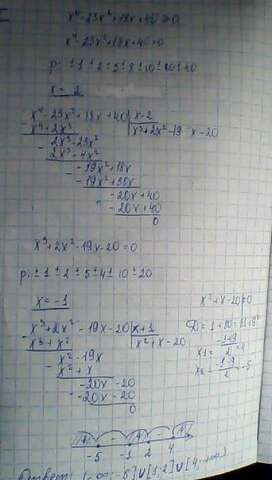 x⁴-23x²+18x+40≥0
x⁴-23x²+18x+40=0
p: ±1 ±2 ±5 ±8 ±10 ±20 ±40
x = 2
x⁴-23x²+18x+40 | x-2
x⁴-2x³ | x³+2x²-19x-20
2x³-23x²
2x³-4x²
-19x²+18x
-19x²+38x
-20x+40
-20x+40
0
x³+2x²-19x-20=0
p: ±1 ±2 ±5 ±4 ±10 ±20
x=-1
x³+2x²-19x-20 | x+1
x³+x² | x²+x-20
x²-19x
x²+x
-20x-20
-20x-20
0
x²+x-20=0
D=1+80=81=9²
x1=(-1+9)/2=4
x2=(-1-9)/2=-5
-5 -1 2 4
Ответ: (-∞;-5]∪[-1;2]∪[4;+∞)